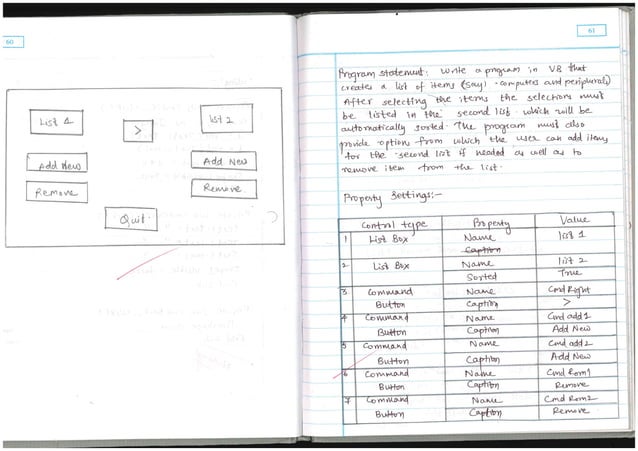 60
List 1
list 2
>
Add New
Add New
Remove
Remove
Quit
61
Program statement: Write a program in VB that
creates a list of items (say) computers and peripherals)
After selecting the items the selections must
be listed in the second list which will be
automatically sorted. The program must also
provide option from which the user can add items
for the second list if needed as well as to
remove item from the list.
Property Settings:-
Control type Property Value
1 List Box Name list 1
Caption
2 List Box Name list 2
Sorted True
3 Command Name Cmd Right
Button Caption >
4 Command Name Cmd add1
Button Caption Add New
5 Command Name Cmd add2
Button Caption Add New
6 Command Name Cmd Rom1
Button Caption Remove
7 Command Name Cmd Rom2
Button Caption Remove